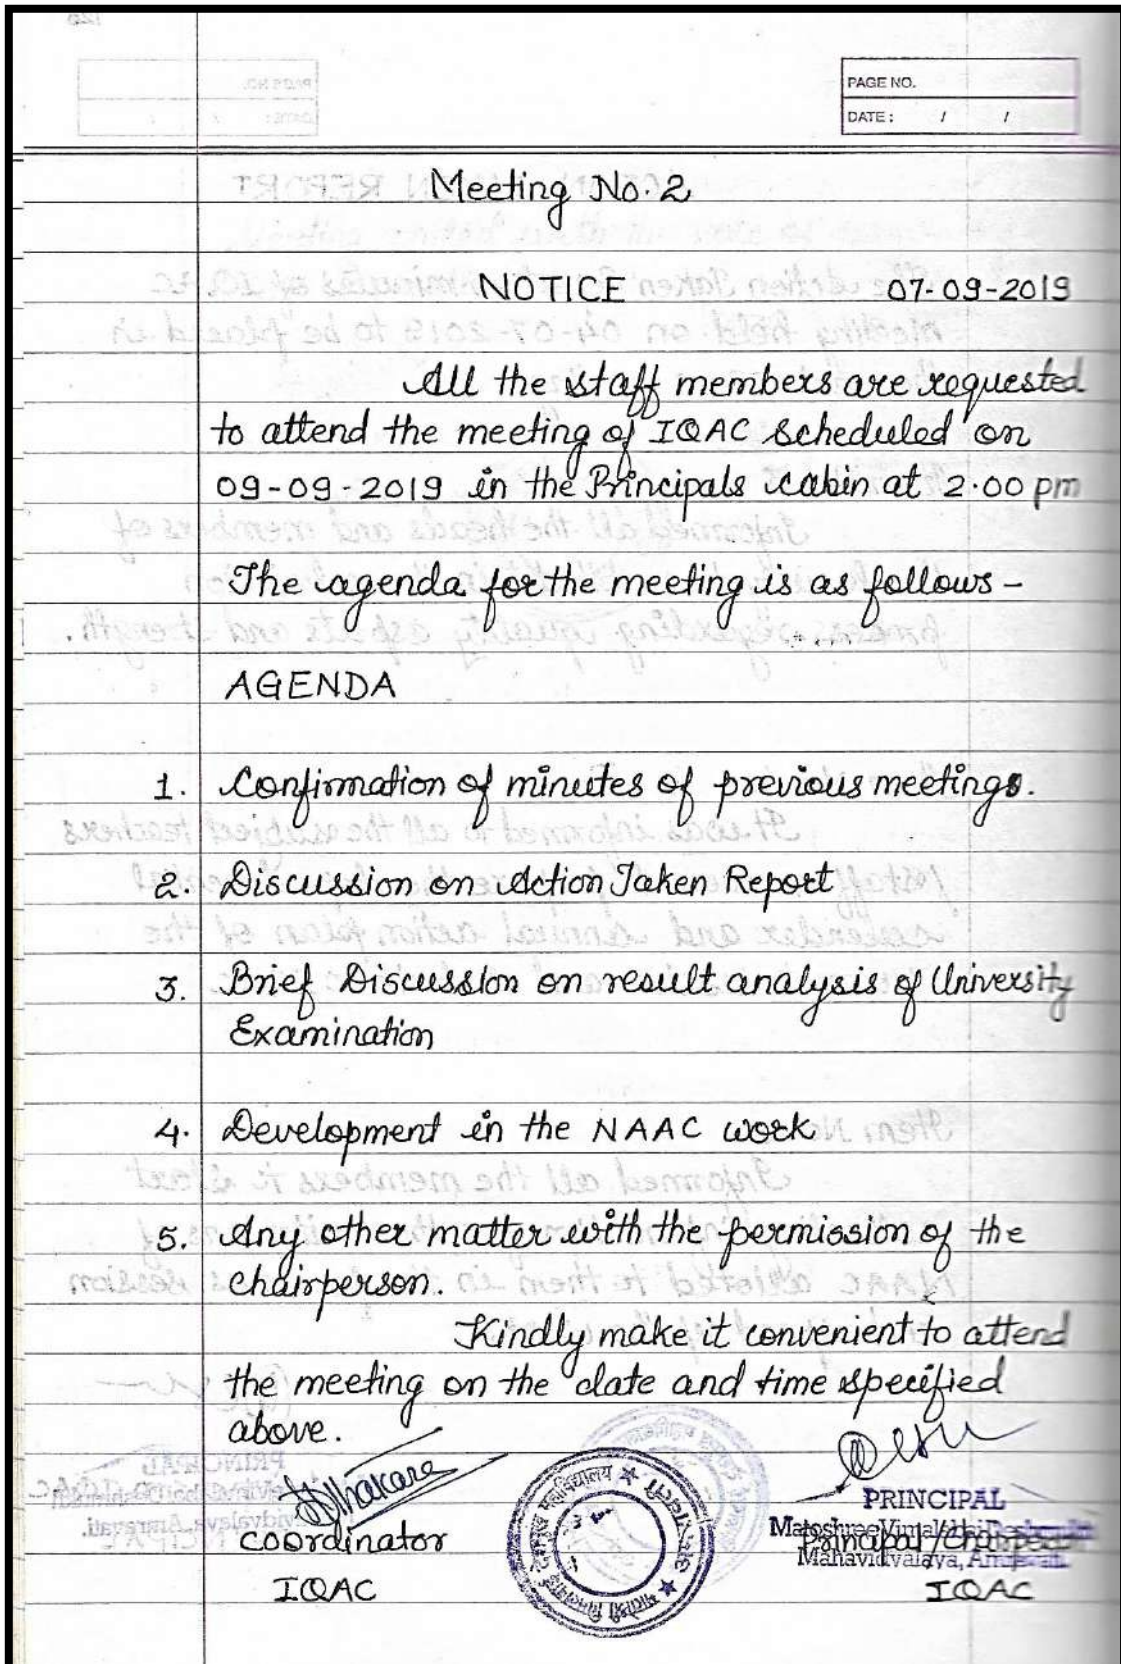 PAGE NO.
DATE : / /
Meeting No. 2
NOTICE 07-09-2019
All the staff members are requested
to attend the meeting of IQAC scheduled on
09-09-2019 in the Principals cabin at 2.00 pm
The agenda for the meeting is as follows -
AGENDA
1. Confirmation of minutes of previous meetings.
2. Discussion on Action Taken Report
3. Brief Discussion on result analysis of University
Examination
4. Development in the NAAC work
5. Any other matter with the permission of the
chairperson.
Kindly make it convenient to attend
the meeting on the date and time specified
above.
PRINCIPAL
Matoshree Vimalabai
Coordinator Principal/Chairperson
Mahavidyalaya, Amravati
IQAC IQAC